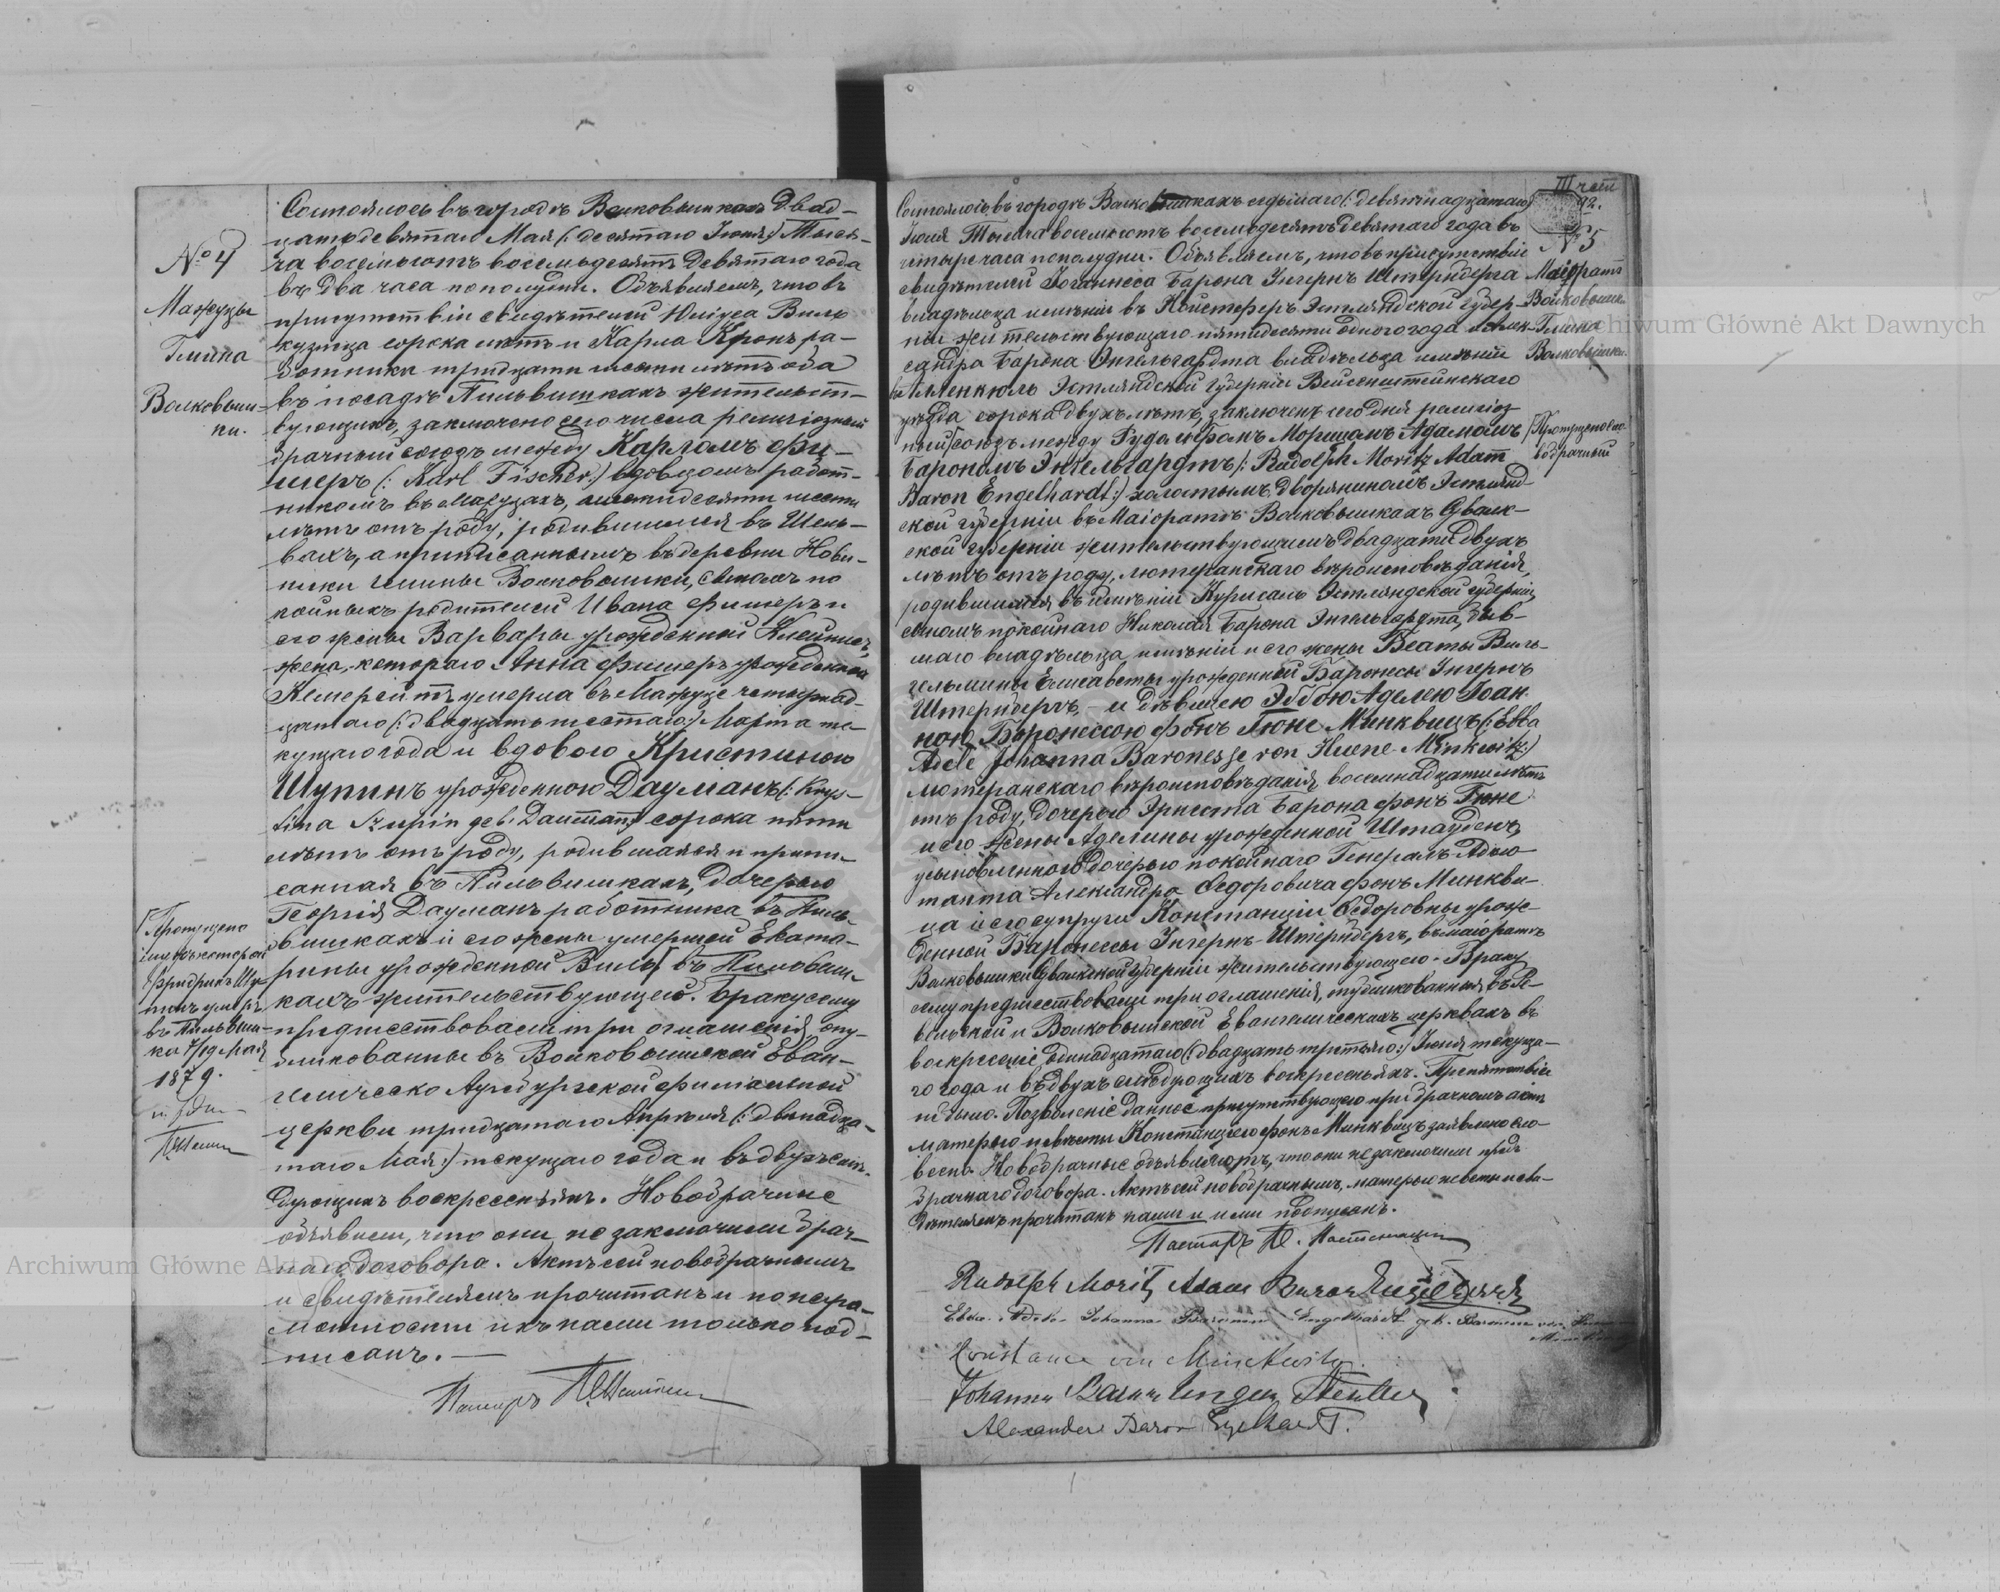 № 4
Мажуцы
Гмина
Волковыш-
ки.
Состоялось въ городѣ Волковышкахъ Двад-
цать девятаго Мая (: десятаго Іюня:) Тыся-
ча восемьсотъ восемьдесятъ девятаго года
въ два часа пополудни. Объявляемъ, что въ
присутствіи свидѣтелей Юліуса Виль
кузнца сорока лѣтъ и Карла Кронъ ра-
ботника тридцати шести лѣтъ оба
въ посадѣ Пильвишкахъ жительст-
вующихъ, заключено сего числа религіозный
брачный союзъ между Карломъ Фи-
шеръ (: Karl Fischer:) вдовцомъ работ-
никомъ въ Мажуцахъ, шестидесяти шести
лѣтъ отъ роду, родившимся въ Шель-
вахъ, а приписаннымъ въ деревни Нови-
ники гмины Волковышки, сыномъ по
койныхъ родителей Ивана Фишеръ и
его жены Варвары урожденной Клейнисъ,
жена котораго Анна Фишеръ урожденная
Кемерейтъ умерла въ Мажуце четырнад-
цатаго (: двадцать шестаго:) Марта те-
кущаго года и вдовою Кристиною
Шупинъ урожденною Дауманъ (: Krys-
tina Szupin geb. Daumann:) сорока пяти
лѣтъ отъ роду, родившаяся и припи-
санная въ Пильвишкахъ, дочерью
Георгія Дауманъ работника въ Пиль-
вишкахъ и его жены умершей Екате-
рины урожденной Виль, въ Пиловиш-
кахъ жительствующею. Браку сему
предшествовали три оглашенія опу-
бликованны въ Волковышской Еван-
гелическо Аугсбургской филіальной
церкви тридцатаго Апрѣля (: двѣнадца-
таго Мая:) текущаго года и въ двухъ слѣ-
дующихъ воскресеньяхъ. Новобрачные
объявили, что они не заключили брач-
наго договора. Актъ сей новобрачнымъ
и свидѣтелямъ прочитанъ и по негра-
мотности ихъ нами только под-
писанъ. —
Пасторъ
[Пропущено
Фридрихъ Шу-
пинъ умеръ
въ Пильвиш-
ки 7/19 Мая
1879.
III част
92.
№ 5
Маіоратъ
Волковышк.
Гмина
Волковышки.
[Пропущено сло-
во брачный
Состоялось въ городѣ Волковышкахъ седьмаго (: девятнадцатаго)
Іюля Тысяча восемьсотъ восемьдесятъ девятаго года въ
четыре часа пополудни. Объявляемъ, что въ присутствіи
свидѣтелей Іоганнеса Барона Унгернъ Штернберга
владѣльца имѣнія въ Нойстеферъ Эстляндской Губер-
ніи жительствующаго пятидесяти одного года и Алек-
сандра Барона Энгельгардта владѣльца имѣнія
въ Аленкюль Эстляндской Губерніи Вейсенштейнскаго
уѣзда, сорока двухъ лѣтъ, заключенъ сего дня религіоз-
ный союзъ между Рудольфомъ Морицомъ Адамомъ
Барономъ Энгельгардтъ (: Rudolph Moritz Adam
Baron Engelhardt:) холостымъ, дворяниномъ Эстлянд-
ской губерніи въ Маіоратѣ Волковышкахъ Сувалк-
ской губерніи жительствующимъ двадцати двухъ
лѣтъ отъ роду, лютеранскаго вѣроисповѣданія,
родившимся въ имѣніи Курисаль Эстляндской губерніи,
сыномъ покойнаго Николая Барона Энгельгардта, быв-
шаго владѣльца имѣній и его жены Беаты Виль-
гельмины Елисаветы урожденной Баронесы Унгернъ
Штернбергъ, — и дѣвицею Эббою Аделею Іоан-
ною Баронессою фонъ Гюне Минквицъ (: Ebba
Adele Johanna Baronesse von Huene Minkwitz:)
лютеранскаго вѣроисповѣданія, восемнадцати лѣтъ
отъ роду, дочерью Эрнеста Барона фонъ Гюне
и его жены Аделины урожденной Штауденъ,
усыновленною дочерью покойнаго Генералъ-Адъю-
танта Александра Ѳедоровича фонъ Минкви-
ца и его супруги Констанціи Ѳедоровны урож-
денной Баронессы Унгернъ-Штернбергъ, въ маіоратѣ
Волковышки Сувалкской губерніи жительствующею. Браку
сему предшествовали три оглашенія, публикованныя въ Ре-
вельской и Волковышской Евангелическихъ церквахъ въ
воскресеніе одинадцатаго (: двадцать третьяго:) Іюня текуща-
го года и въ двухъ слѣдующихъ воскресеньяхъ. Препятствія
не было. Позволеніе данное присутствующею при брачномъ актѣ
матерью невѣсты Констанціею фонъ Минквицъ заявлено сло-
весно. Новобрачные объявляютъ, что они не заключили пред-
брачнаго договора. Актъ сей новобрачнымъ, матерью невѣсты и сви-
дѣтелямъ прочитанъ нами и ими подписанъ.
Пасторъ
Rudolph Moritz Adam Baron Engelhardt
Ebba Adele Johanna Baronin Engelhardt geb. Baronesse von Huene
Minkwitz
Constance von Minkwitz.
Johannes Baron Ungern Sternberg
Alexander Baron Engelhardt.
Archiwum Główne Akt Dawnych
Archiwum Główne Akt Dawnych